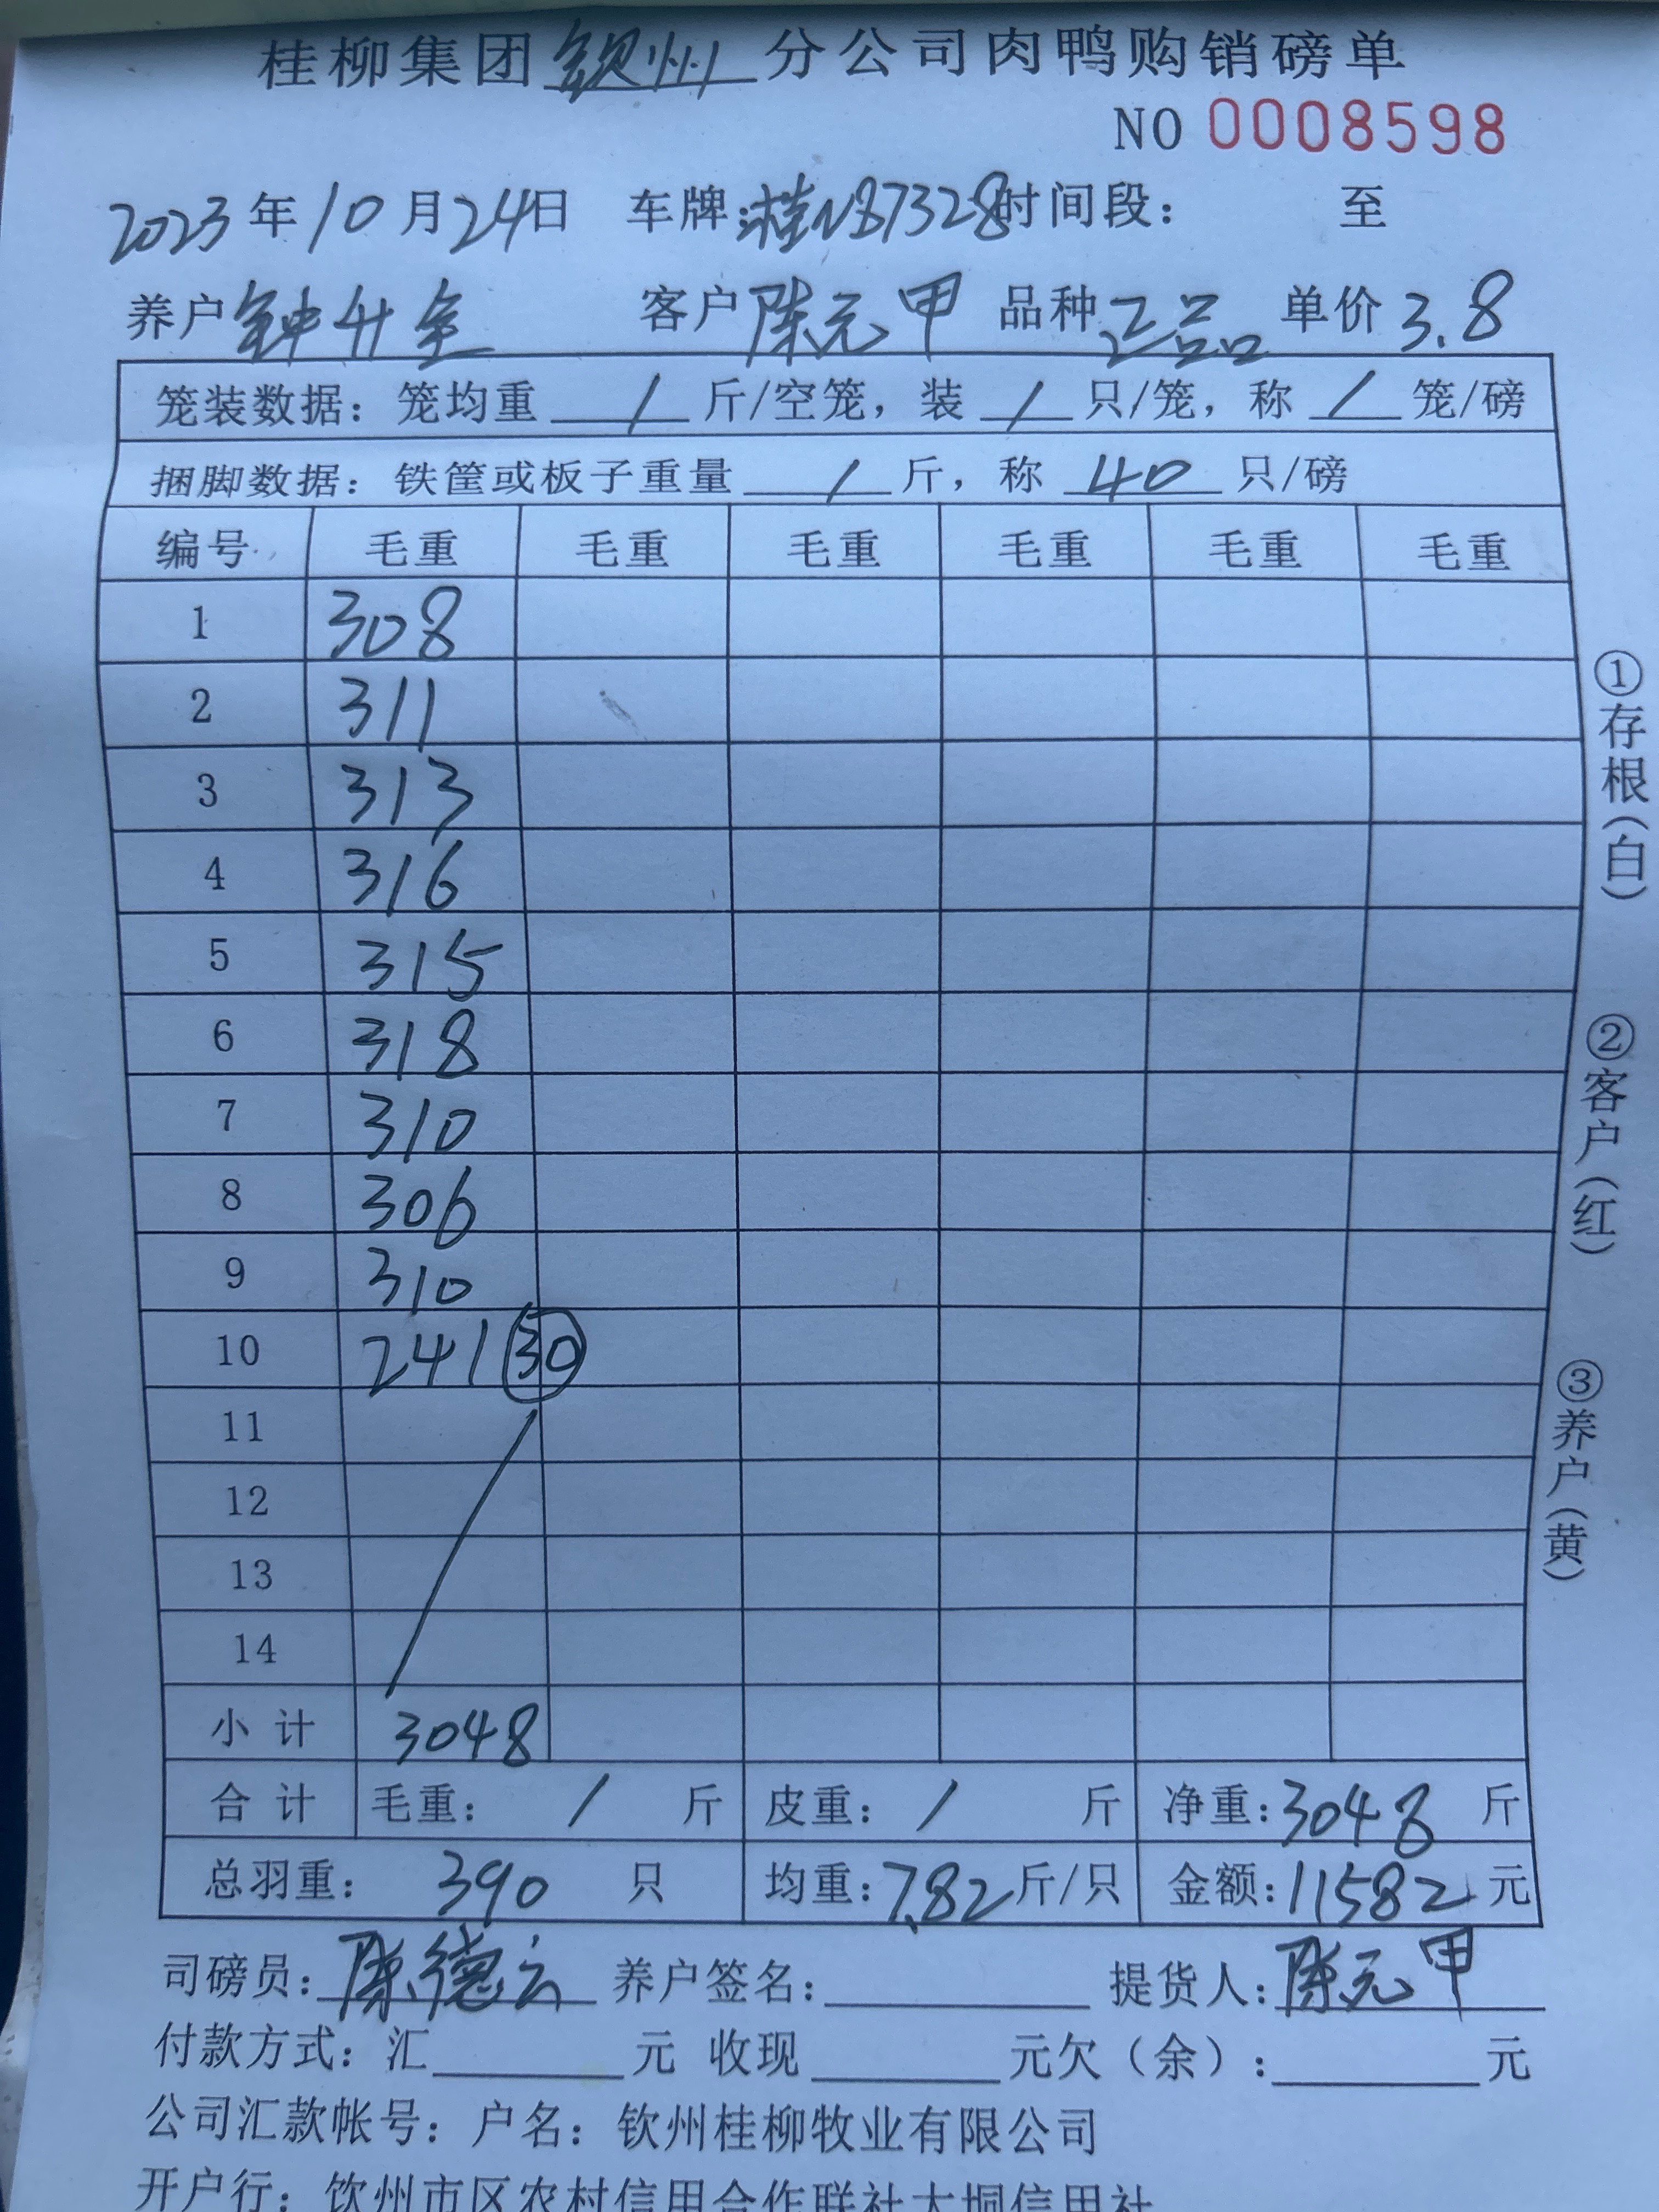 桂柳集团钦州分公司肉鸭购销磅单
NO 0008598
2023年10月24日 车牌:桂N87328时间段: 至
养户钟升全 客户陈元甲 品种正品 单价3.8
笼装数据: 笼均重 / 斤/空笼, 装 / 只/笼, 称 / 笼/磅
捆脚数据: 铁筐或板子重量 / 斤, 称 40 只/磅
编号 毛重 毛重 毛重 毛重 毛重 毛重
1 308
2 311
3 313
4 316
5 315
6 318
7 310
8 306
9 310
10 241 30
11
12
13
14
小计 3048
合计 毛重: / 斤 皮重: / 斤 净重:3048 斤
总羽重: 390 只 均重:7.82斤/只 金额:11582元
司磅员:陈德云 养户签名: 提货人:陈元甲
付款方式: 汇 元 收现 元欠(余): 元
公司汇款帐号: 户名: 钦州桂柳牧业有限公司
开户行: 钦州市区农村信用合作联社大垌信用社
①存根(白)
②客户(红)
③养户(黄)